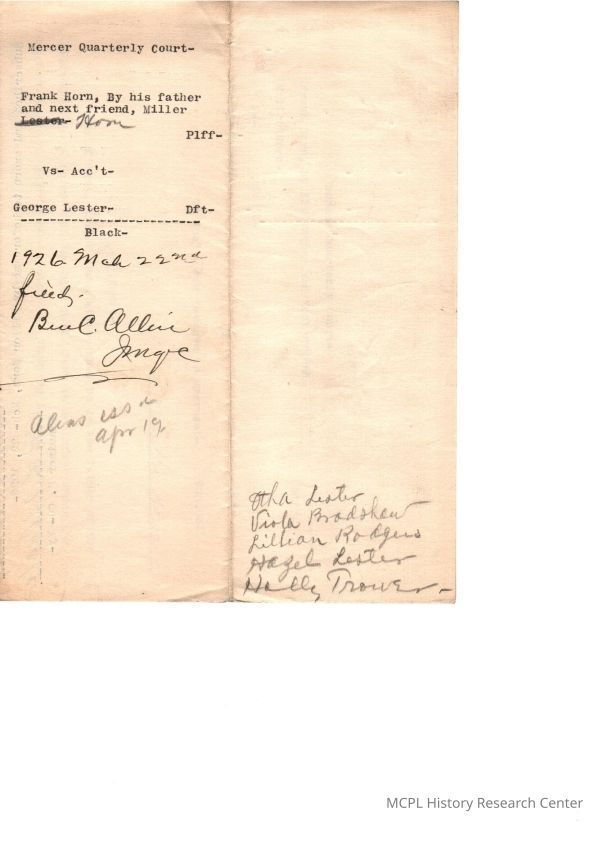 Mercer Quarterly Court-
Frank Horn, By his father
and next friend, Miller
Lester- Horn
Plff-
Vs- Acc't-
George Lester- Dft-
Black-
1926 Mch 22nd
filed.
Ben C. Allin
Alias iss'd
Apr 19
Lester
Viola Bradshaw
Lillian Rodgers
Hazel Lester
Trower-
MCPL History Research Center